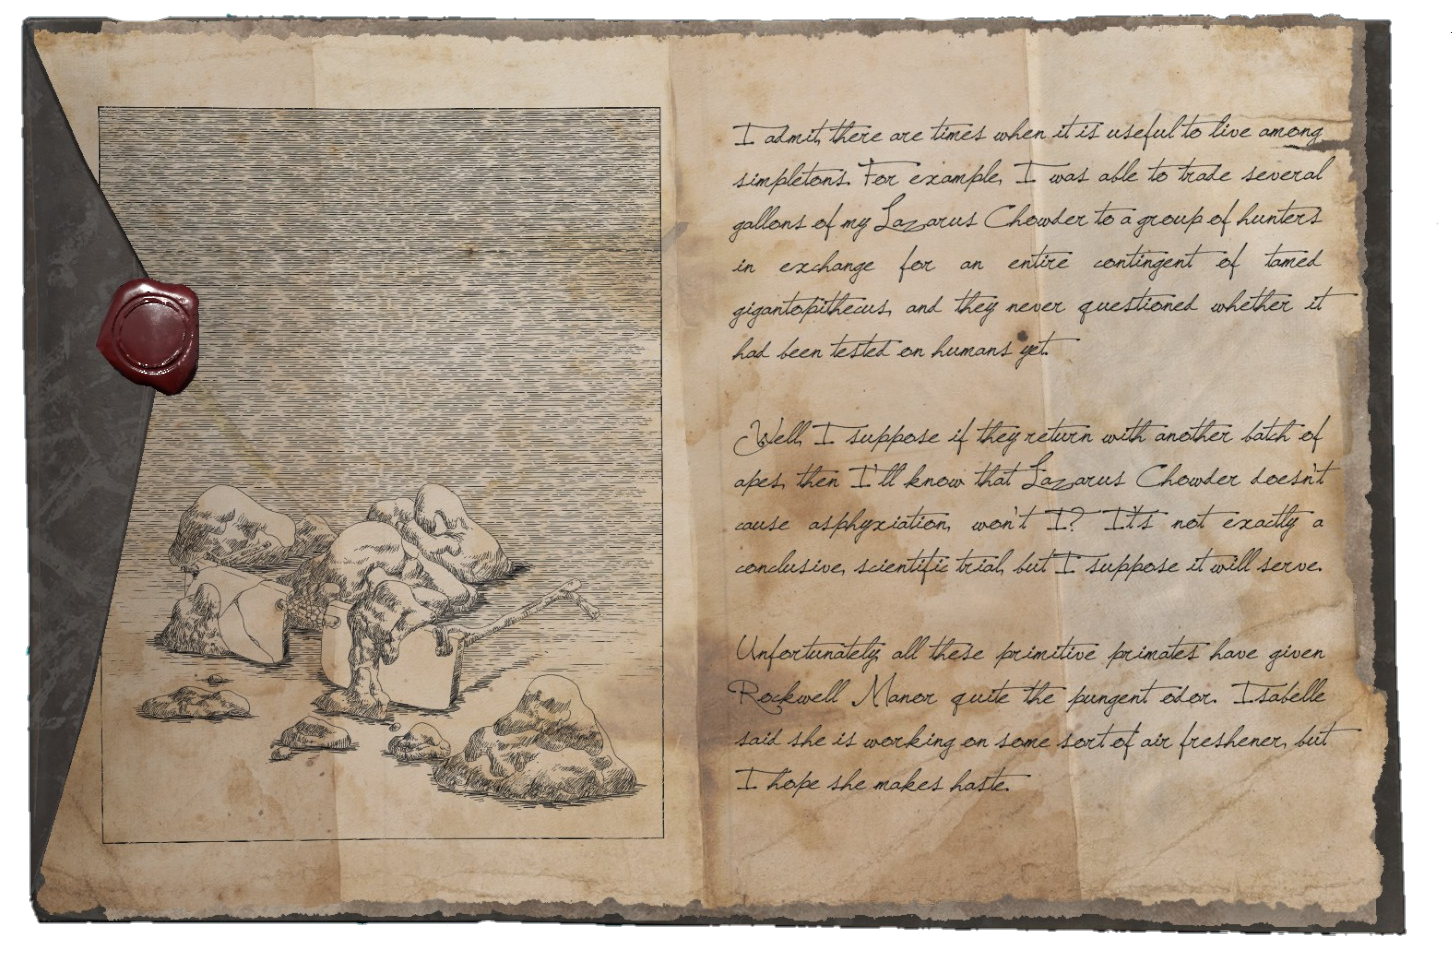 I admit, there are times when it is useful to live among
simpletons. For example, I was able to trade several
gallons of my Lazarus Chowder to a group of hunters
in exchange for an entire contingent of tamed
gigantopithecus, and they never questioned whether it
had been tested on humans yet.
Well, I suppose if they return with another batch of
apes, then I'll know that Lazarus Chowder doesn't
cause asphyxiation, won't I? It's not exactly a
conclusive, scientific trial, but I suppose it will serve.
Unfortunately, all these primitive primates have given
Rockwell Manor quite the pungent odor. Isabelle
said she is working on some sort of air freshener, but
I hope she makes haste.